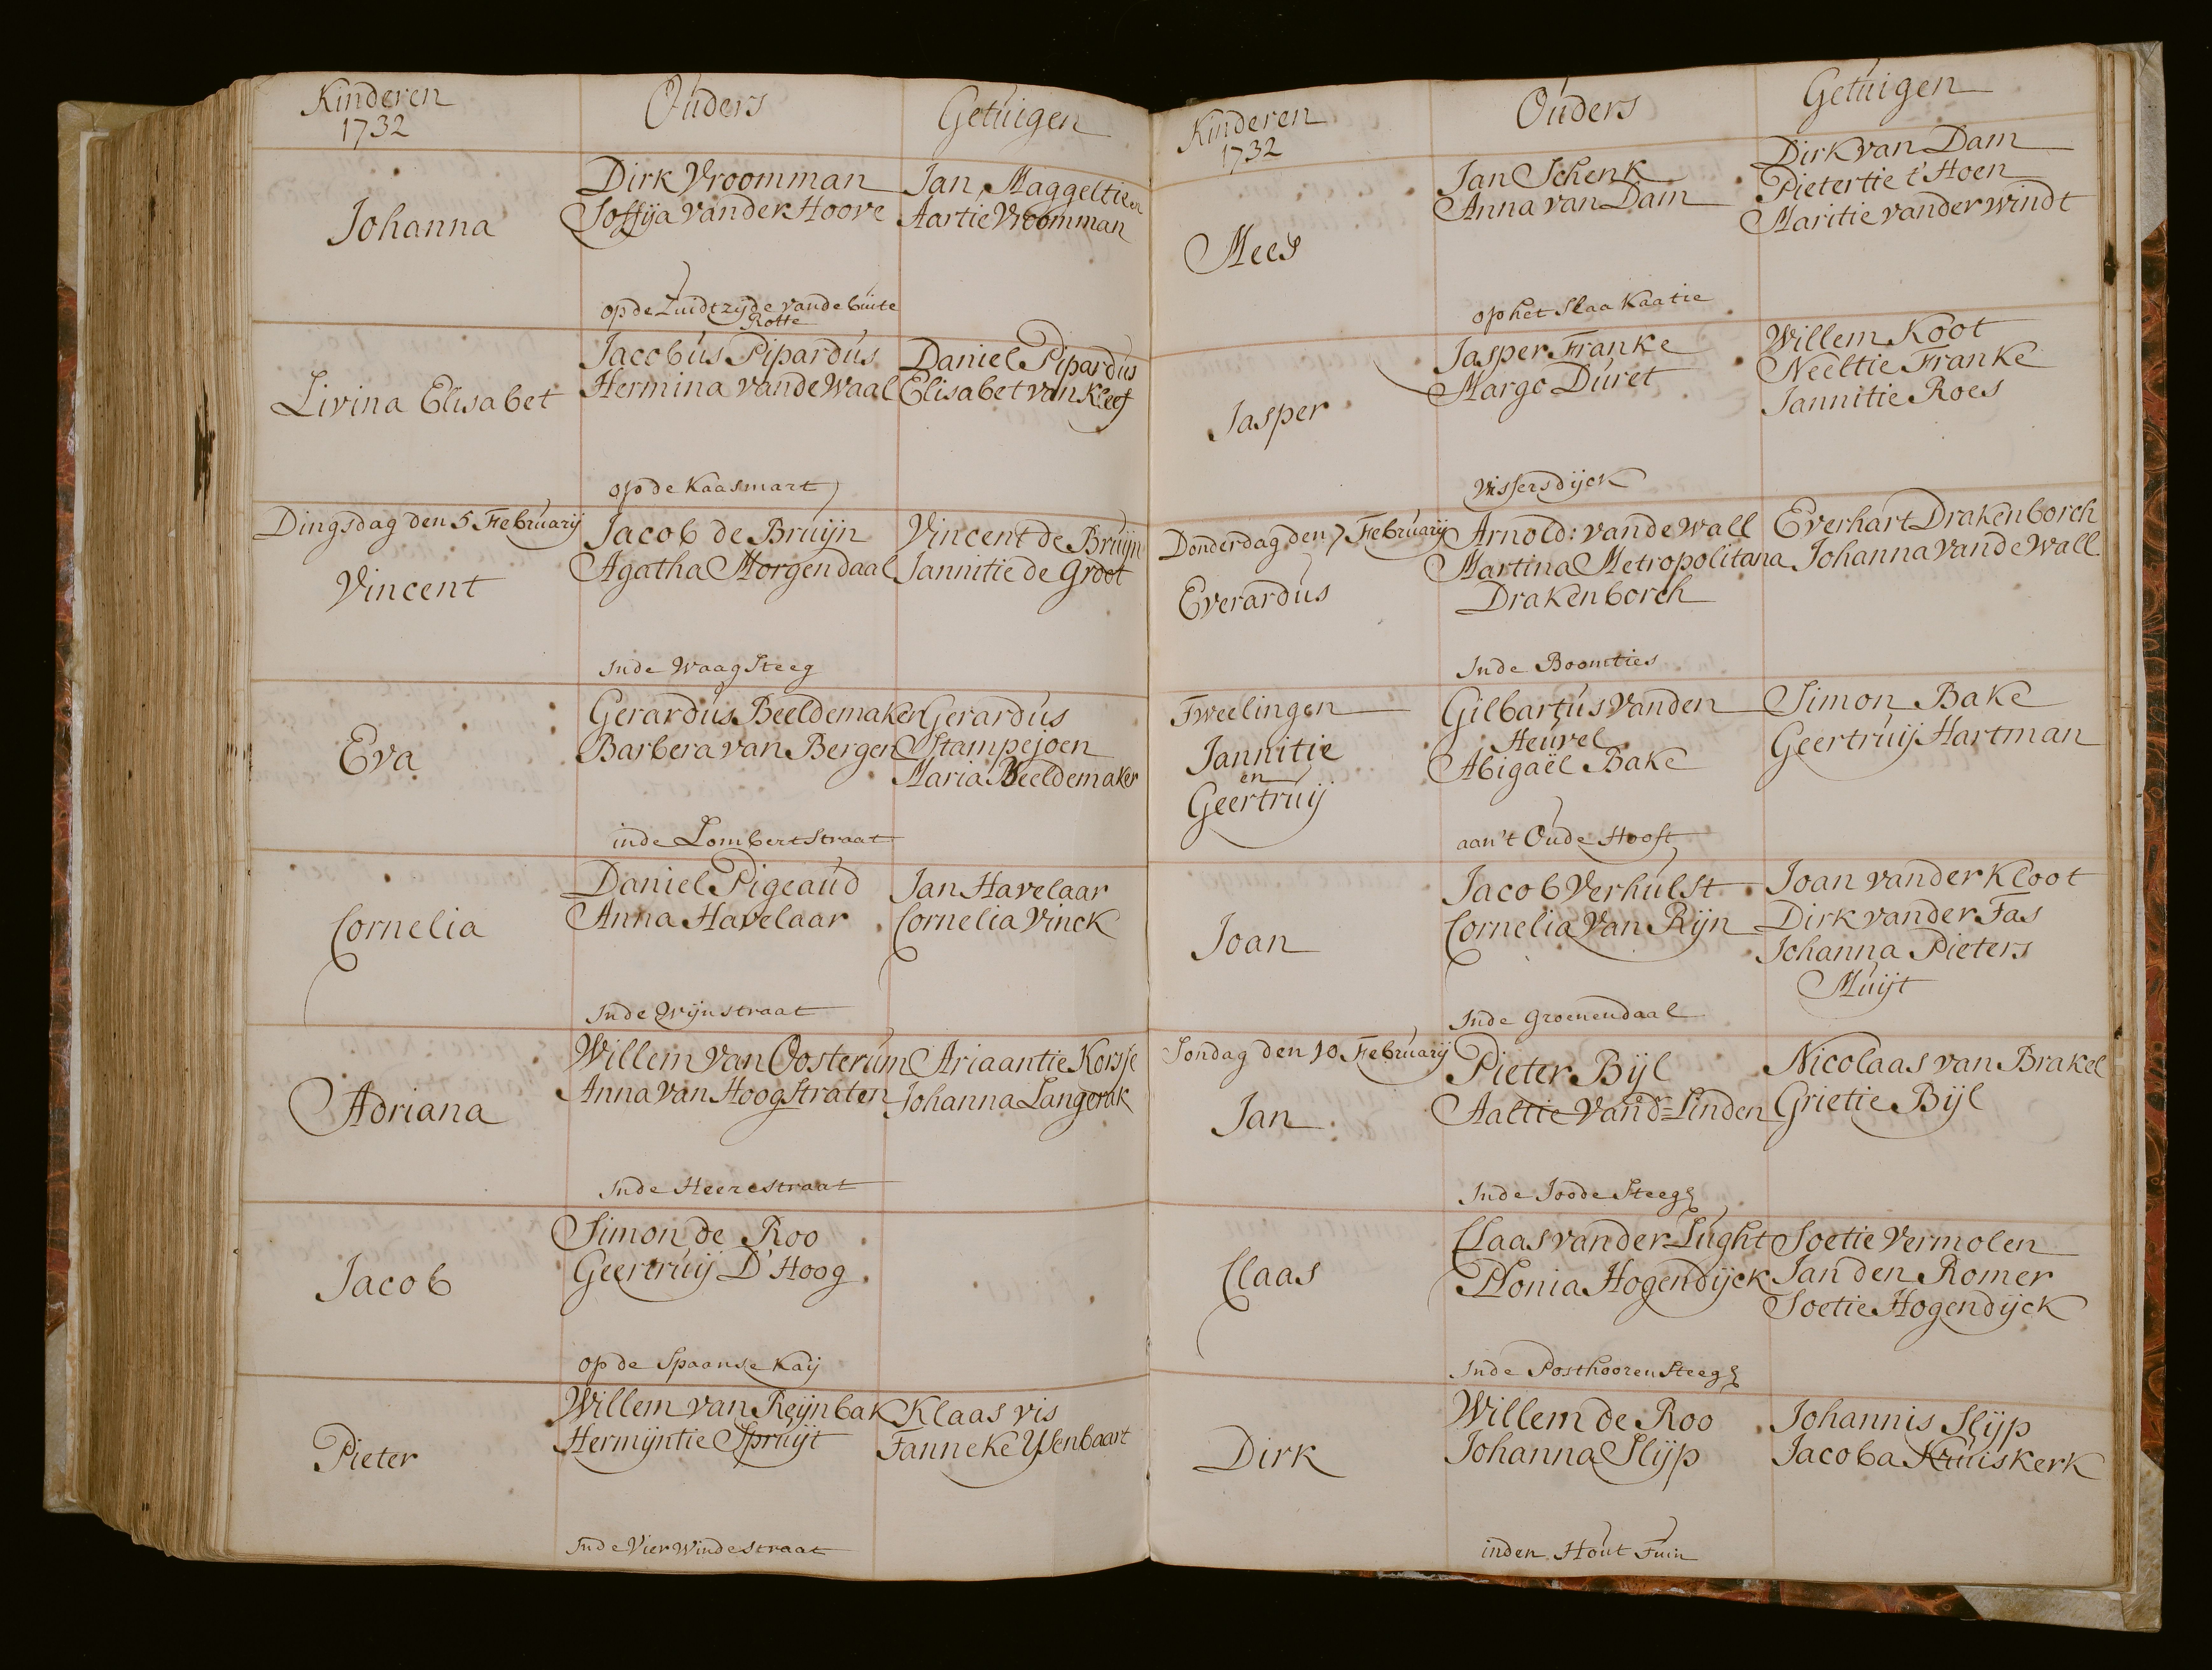 Kinderen
1732
Ouders
Getuigen
Johanna
Dirk Vroomman
Soffija vander Hoove
op de Zuidtzijde vande buite
Rotte
Jan Maggeltien
Aartie Vroomman
Livina Elisabet
Jacobus Pipardus
Hermina vande Waal
op de Kaasmart
Daniel Pipardus
Elisabet van Kleef
Dingsdag den 5 Februarij
Vincent
Jacob de Bruijn
Agatha Morgendaal
Inde Waag Steeg
Vincent de Bruijn
Jannitie de Groot
Eva
Gerardus Beeldemaker
Barbera van Bergen
inde Lombertstraat
Gerardus
Stampejoen
Maria Beeldemaker
Cornelia
Daniel Pigeaud
Anna Havelaar
Inde Wijnstraat
Jan Havelaar
Cornelia Vinck
Adriana
Willem van Oosterum
Anna van Hoogstraten
Inde Heerestraat
Ariaantie Korsje
Johanna Langerak
Jacob
Simon de Roo
Geertruij D'Hoog
op de Spaanse Kaij
Pieter
Willem van Reijnbak
Hermijntie Spruijt
Inde Vier Windestraat
Klaas vis
Fanneke Ysenbaart
Kinderen
1732
Ouders
Getuigen
Mees
Jan Schenk
Anna van Dam
op het Slaa Kaatie
Dirk van Dam
Pietertie t'Hoen
Maritie vander windt
Jasper
Jasper Franke
Margo Duret
Vissersdijck
Willem Koot
Neeltie Franke
Jannitie Roes
Donderdag den 7 Februarij
Everardus
Arnold: vande Wall
Martina Metropolitana
Drakenborch
Inde Boomties
Everhart Drakenborch
Johanna vande Wall
Tweelingen
Jannitie
en
Geertruij
Gilbartus vanden
Heuvel
Abigaël Bake
aan't Oude Hooft
Simon Bake
Geertruij Hartman
Joan
Jacob Verhulst
Cornelia Van Rijn
Inde Groenendaal
Joan vander Kloot
Dirk vander Fas
Johanna Pieters
Muijt
Sondag den 10 Februarij
Jan
Pieter Bijl
Aaltie vand=Linden
Inde Joode Steeg
Nicolaas van Brakel
Grietie Bijl
Claas
Claas vander Lught
Plonia Hogendijck
Inde Posthooren Steeg
Soetie Vermolen
Jan den Romer
Soetie Hogendijck
Dirk
Willem de Roo
Johanna Slijp
inden Hout Tuin
Johannis Slijp
Jacoba Kruiskerk